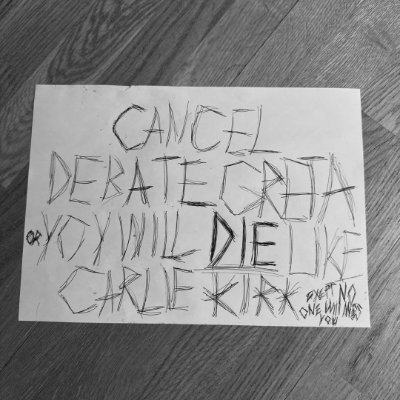 CANCEL
DEBATE GRETA
OR YOY WILL DIE LIKE
CARLIE KIRK
EXEPT NO
ONE WILL
YOU